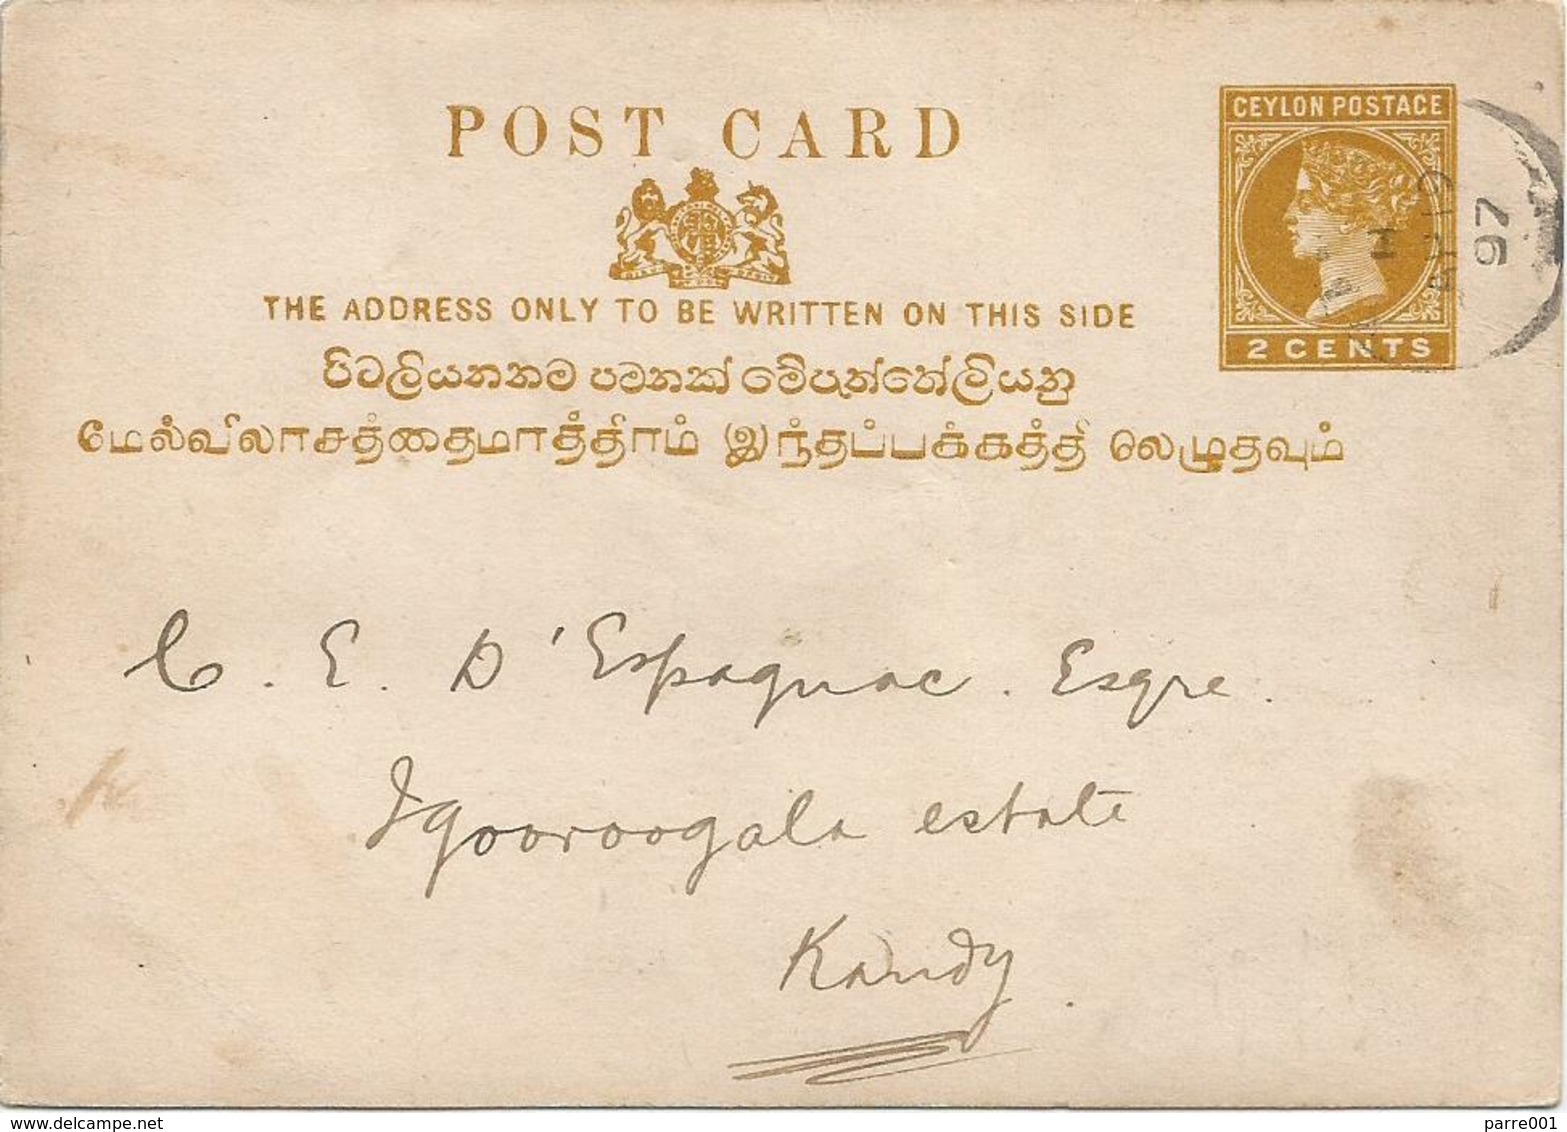 POST CARD
CEYLON POSTAGE
2 CENTS
97
THE ADDRESS ONLY TO BE WRITTEN ON THIS SIDE
පිටලියනතම පමනක් මේපුත්තේලියනු
மேல்விலாசத்தைமாத்திரம் இந்தப்பக்கத்தி லெழுதவும்
C. E. D'Espagnac. Esqre.
Igooroogala estate
Kandy.
www.delcampe.net
parre001